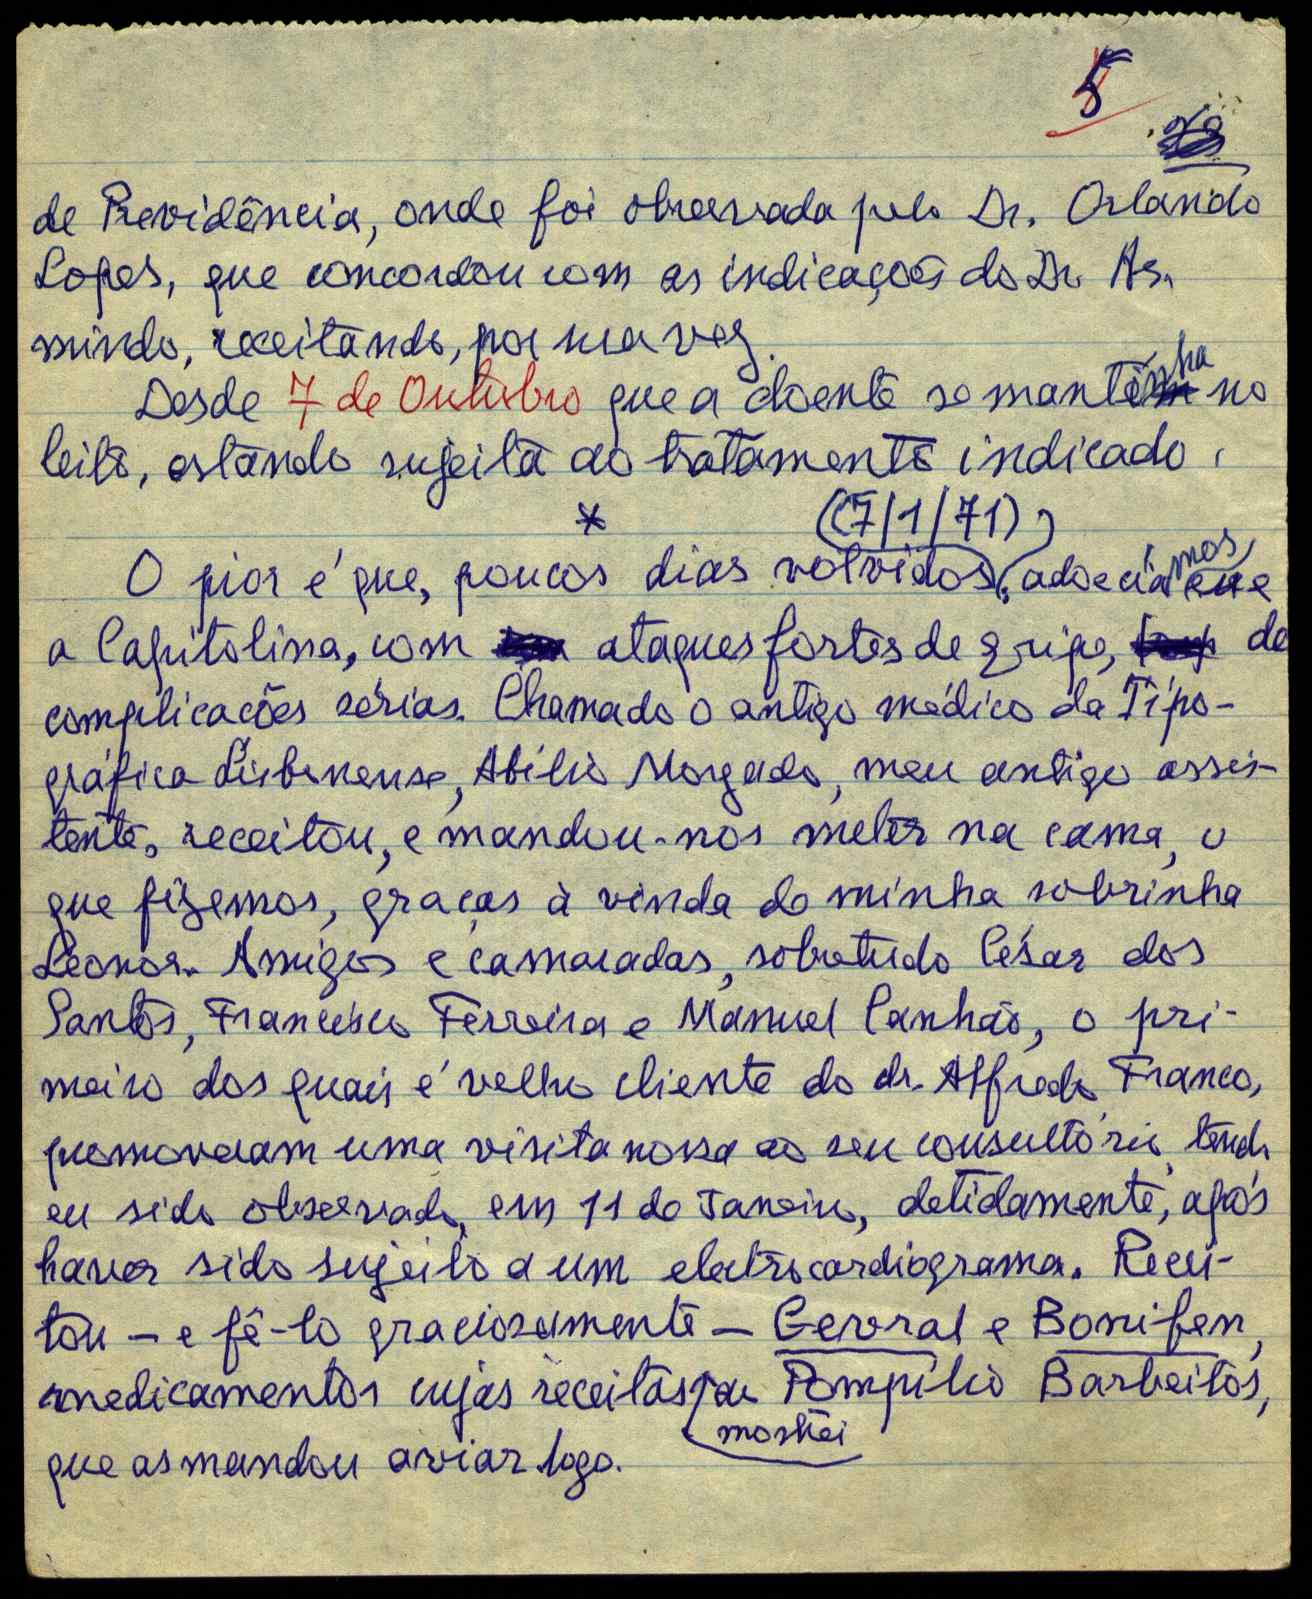 5
de Previdência, onde foi observada pelo Dr. Orlando
Lopes, que concordou com as indicações do Dr. Ar-
mindo, receitando, por sua vez.
Desde 7 de Outubro que a doente se mantinha no
leito, estando sujeita ao tratamento indicado.
*
(7/1/71),
O pior é que, poucos dias volvidos, adoecíamos, eu e
a Capitolina, com ataques fortes de gripe, de
complicações sérias. Chamado o antigo médico da Tipo-
gráfica Lisbonense, Abílio Morgado, meu antigo assis-
tente, receitou, e mandou-nos meter na cama, o
que fizemos, graças à vinda de minha sobrinha
Leonor. Amigos e camaradas, sobretudo César dos
Santos, Francisco Ferreira e Manuel Canhão, o pri-
meiro dos quais é velho cliente do dr. Alfredo Franco,
promoveram uma visita nossa ao seu consultório, tendo
eu sido observado, em 11 de Janeiro, detidamente, após
haver sido sujeito a um electrocardiograma. Recei-
tou — e fê-lo graciosamente — Gevral e Bonifen,
medicamentos cujas receitas mostrei a Pompílio Barbeitos,
que as mandou aviar logo.